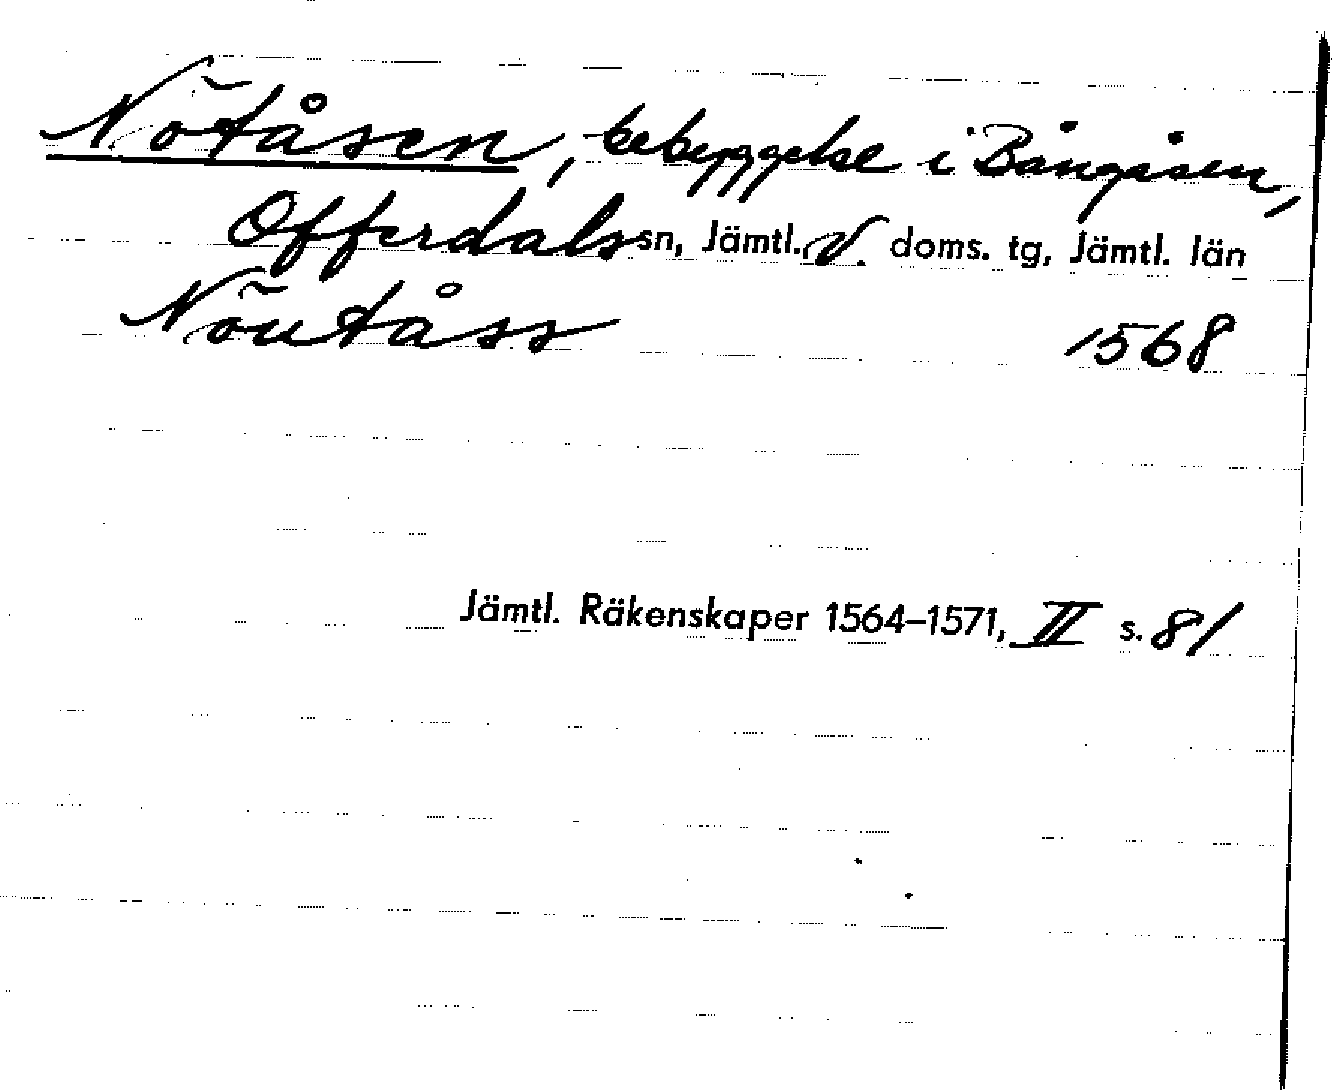 Nötåsen, bebyggelse i Bångåsen,
Offerdals sn, Jämtl. V. doms. tg, Jämtl. län
Nöutåss 1568
Jämtl. Räkenskaper 1564–1571, II s. 81